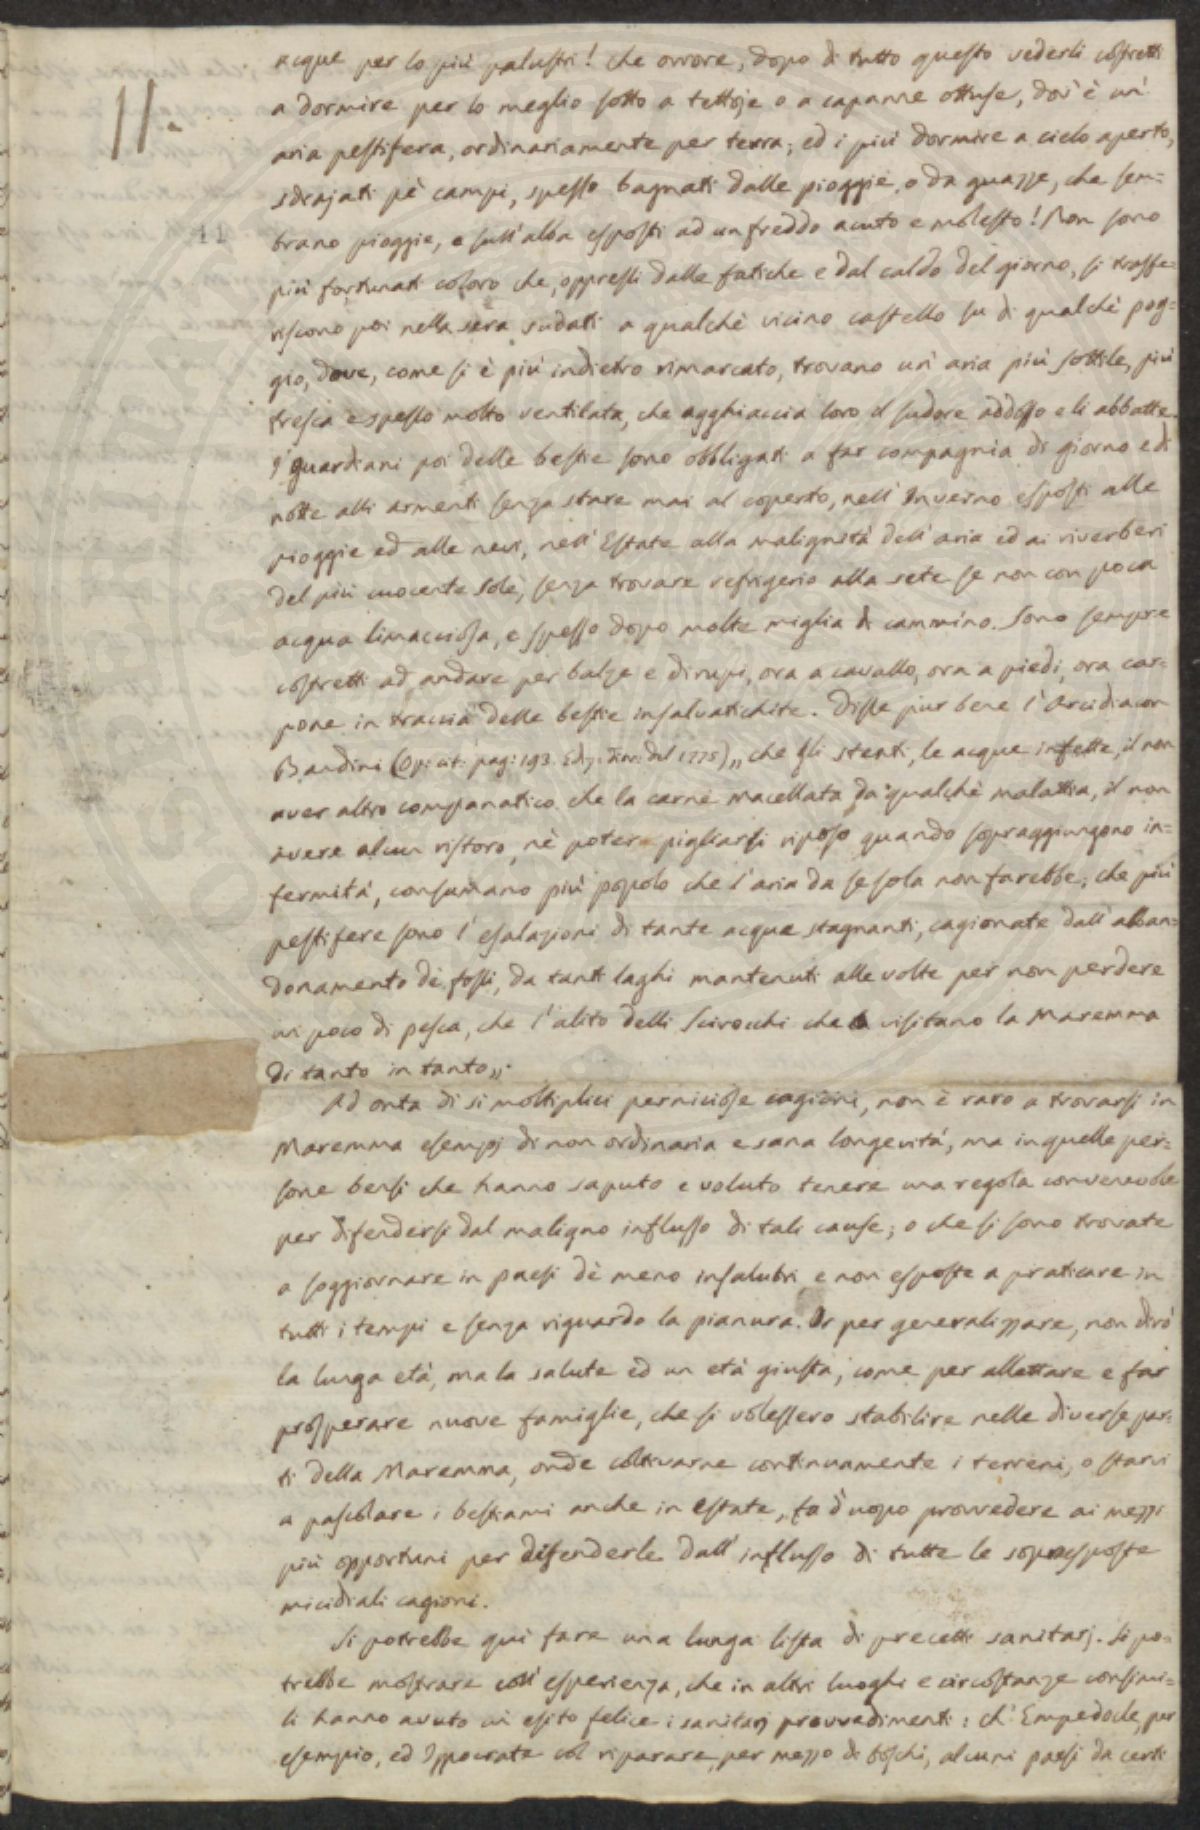 11.
acque per lo più palustri! che orrore, dopo di tutto questo vederli costretti
a dormire per lo meglio sotto a tettoje o a capanne ottuse, dov'è un'
aria pestifera, ordinariamente per terra; ed i più dormire a cielo aperto,
sdrajati pè campi, spesso bagnati dalle pioggie, o da guazze, che sem=
brano pioggie, e sull'alba esposti ad un freddo acuto e molesto! Non sono
più fortunati coloro che, oppressi dalle fatiche e dal caldo del giorno, si trasfe=
riscono poi nella sera sudati a qualchè vicino castello su di qualchè pog=
gio, dove, come si è più indietro rimarcato, trovano un'aria più sottile, più
fresca e spesso molto ventilata, che agghiaccia loro il sudore addosso e li abbatte.
I guardiani poi delle bestie sono obbligati a far compagnia di giorno e di
notte alli armenti senza stare mai al coperto, nell'Inverno esposti alle
pioggie ed alle nevi, nell'Estate alla malignità dell'aria ed ai riverberi
del più cuocente sole, senza trovare refrigerio alla sete se non con poca
acqua limacciosa, e spesso dopo molte miglia di cammino. Sono sempre
costretti ad andare per balze e dirupi, ora a cavallo, ora a piedi, ora car=
pone in traccia delle bestie insalvatichite. Disse pur bene l'Arcidiacon
Bandini (Op: cit: pag: 193. Ediz: Fior: del 1775) „ che gli stenti, le acque infette, il non
aver altro companatico che la carne macellata da qualchè malattia, il non
avere alcun ristoro, nè poter pigliarsi riposo quando sopraggiungono in=
fermità, consumano più popolo che l'aria da se sola non farebbe; che più
pestifere sono l'esalazioni di tante acque stagnanti, cagionate dall'abban=
donamento dè fossi, da tanti laghi mantenuti alle volte per non perdere
un poco di pesca, che l'alito delli Scirocchi che visitano la Maremma
di tanto in tanto „.
Ad onta di si moltiplici perniciose cagioni, non è raro a trovarsi in
Maremma esempj di non ordinaria e sana longevità, ma in quelle per=
sone bensi che hanno saputo e voluto tenere una regola convenevole
per difendersi dal maligno influsso di tali cause; o che si sono trovate
a soggiornare in paesi dè meno insalubri e non esposte a praticare in
tutti i tempi e senza riguardo la pianura. Or per generalizzare, non dirò
la lunga età, ma la salute ed un età giusta, come per allettare e far
prosperare nuove famiglie, che si volessero stabilire nelle diverse par=
ti della Maremma, onde coltivarne continuamente i terreni, o starvi
a pascolare i bestiami anche in Estate, fa d'uopo provvedere ai mezzi
più opportuni per difenderle dall'influsso di tutte le sopraesposte
micidiali cagioni.
Si potrebbe qui fare una lunga lista di precetti sanitarj. Si po=
trebbe mostrare coll'esperienza, che in altri luoghi e circostanze consimi=
li hanno avuto un esito felice i sanitarj provvedimenti: ch'Empedocle, per
esempio, ed Ippocrate col riparare, per mezzo di boschi, alcuni paesi da certi